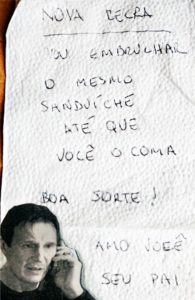 NOVA REGRA
VOU EMBRULHAR
O MESMO
SANDUÍCHE
ATÉ QUE
VOCÊ O COMA
BOA SORTE!
AMO VOCÊ
SEU PAI